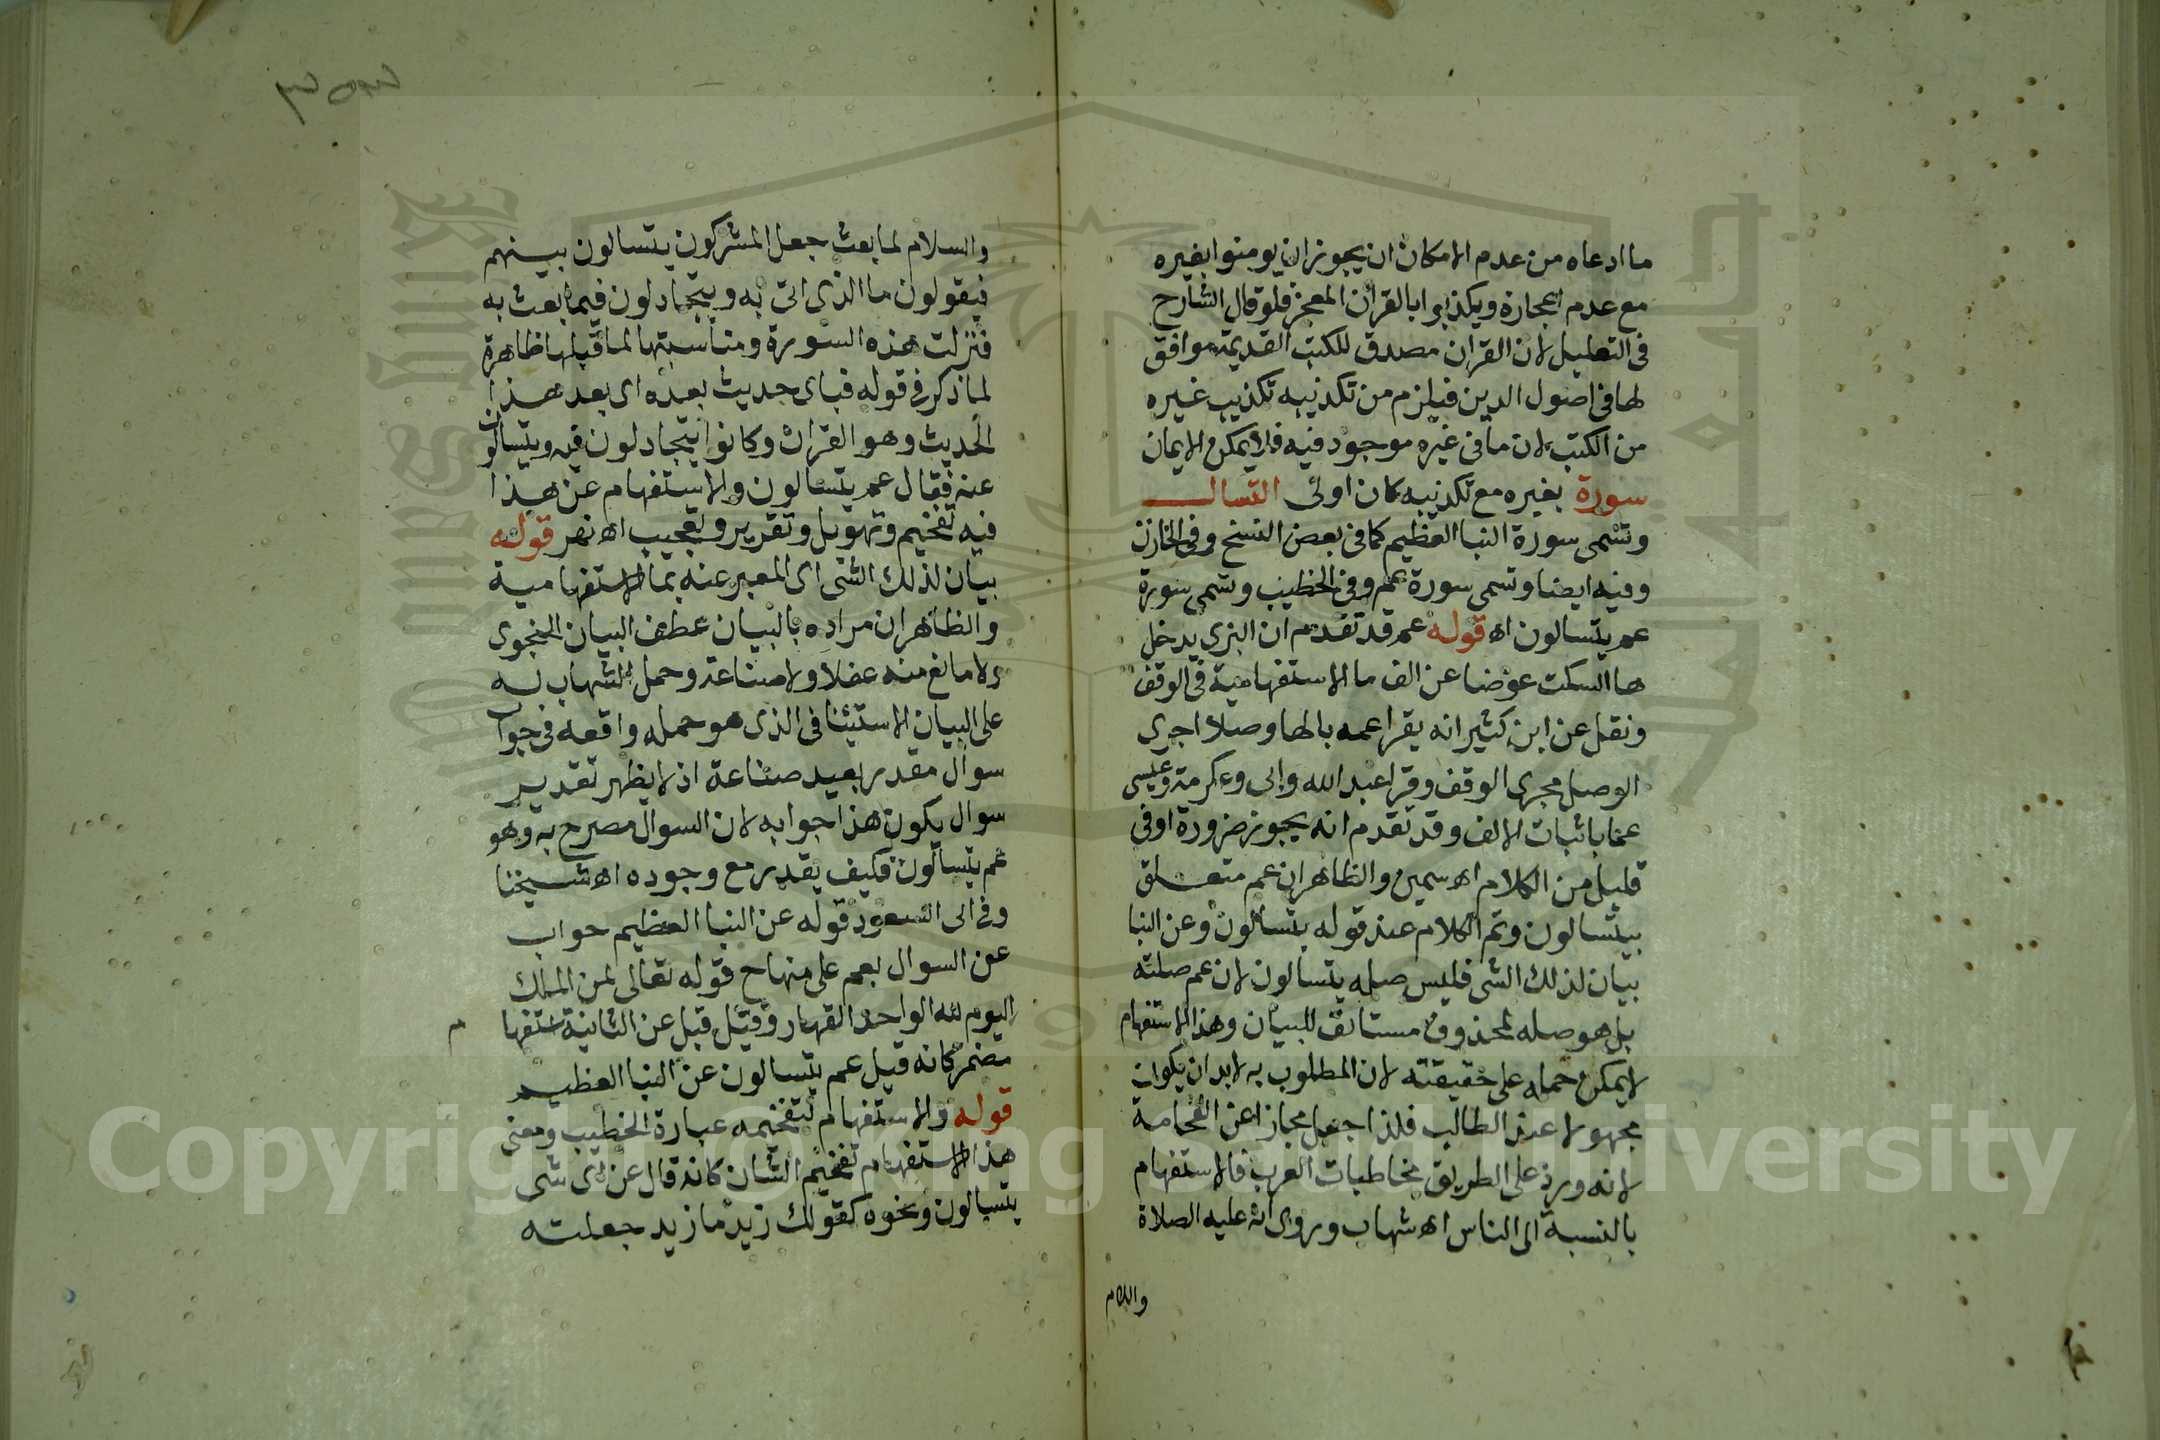 ما ادعاه من عدم الامكان ان يجوز ان يومنوا بغيره
مع عدم اعجازه ويكذبوا بالقرآن المعجز فلو قال الشارح
فى التعليل لان القران مصدق للكتب القديمة موافق
لها فى اصول الدين فيلزم من تكذيبه تكذيب غيره
من الكتب لان ما فى غيره موجود فيه فلا يمكن الايمان
سورة بغيره مع تكذيبه كان اولى التسال
وتسمى سورة النبا العظيم كما فى بعض النسخ وفى الخازن
وفيه ايضا وتسمى سورة عم وفى الخطيب وتسمى سورة
عم يتسالون اه قوله عم قد تقدم ان البزى يدخل
ها السكت عوضا عن الف ما الاستفهامية فى الوقف
ونقل عن ابن كثير انه يقرا عمه بالها وصلا اجرى
الوصل مجرى الوقف وقرا عبد الله وابى وعكرمة وعيسى
عما باثبات الالف وقد تقدم انه يجوز ضرورة اوفى
قليل من الكلام اه سمين والظاهر ان عم متعلق
بيتسالون وتم الكلام عند قوله يتسالون وعن النبا
بيان لذلك الشى فليس صله يتسالون لان عم صلته
بل هو صله لمحذوف مستانف للبيان وهذا الاستفهام
لا يمكن حمله على حقيقته لان المطلوب به لابد ان يكون
مجهولا عند الطالب فلذا جعل مجازا عن الفخامة
لانه ورد على الطريق مخاطبات العرب فالاستفهام
بالنسبة الى الناس اه شهاب وروى انه عليه الصلاة
والسلام
والسلام لما بعث جعل المشركون يتسالون بينهم
فيقولون ما الذى اتى به ويتجادلون فيما بعث به
فنزلت هذه السورة ومناسبتها لما قبلها ظاهرة
لما ذكر فى قوله فباى حديث بعده اى بعد هذا
الحديث وهو القران وكانوا يتجادلون فيه ويتسالون
عنه فقال عم يتسالون والاستفهام عن هذا
فيه تفخيم وتهويل وتقرير وتعجيب اه نهر قوله
بيان لذلك الشى اى المعبر عنه بما الاستفهامية
والظاهر ان مراده بالبيان عطف البيان النحوى
ولا مانع منه عقلا ولا صناعة وحمل الشهاب له
على البيان الاستئنافى الذى هو حمله واقعه فى جواب
سوال مقدر بعيد صناعة اذ لا يظهر تقدير
سوال يكون هذا جوابه لان السوال مصرح به وهو
عم يتسالون فكيف يقدر مع وجوده اه شيخنا
وفى ابى السعود قوله عن النبا العظيم جواب
عن السوال بعم على منهاج قوله تعالى لمن الملك
اليوم لله الواحد القهار وقيل قبل عن الثانية استفها م
مضمر كانه قيل عم يتسالون عن النبا العظيم
قوله والاستفهام لتفخيمه عبارة الخطيب ومعنى
هذا الاستفهام تفخيم الشان كانه قال عن اى شى
يتسالون ونحوه كقولك زيد ما زيد جعلته
Copyright © King Saud University